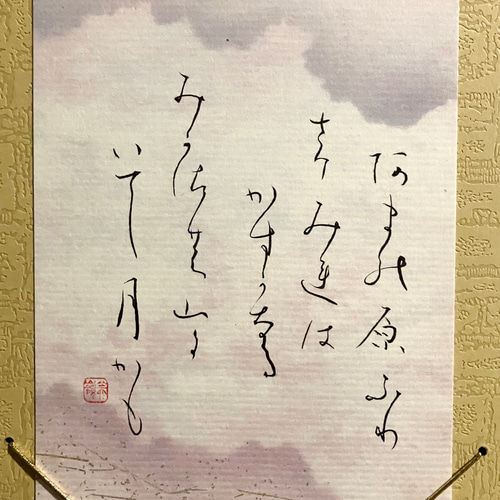 あまの原ふり
さけみれは
かすかなる
みかさの山に
いてし月かも